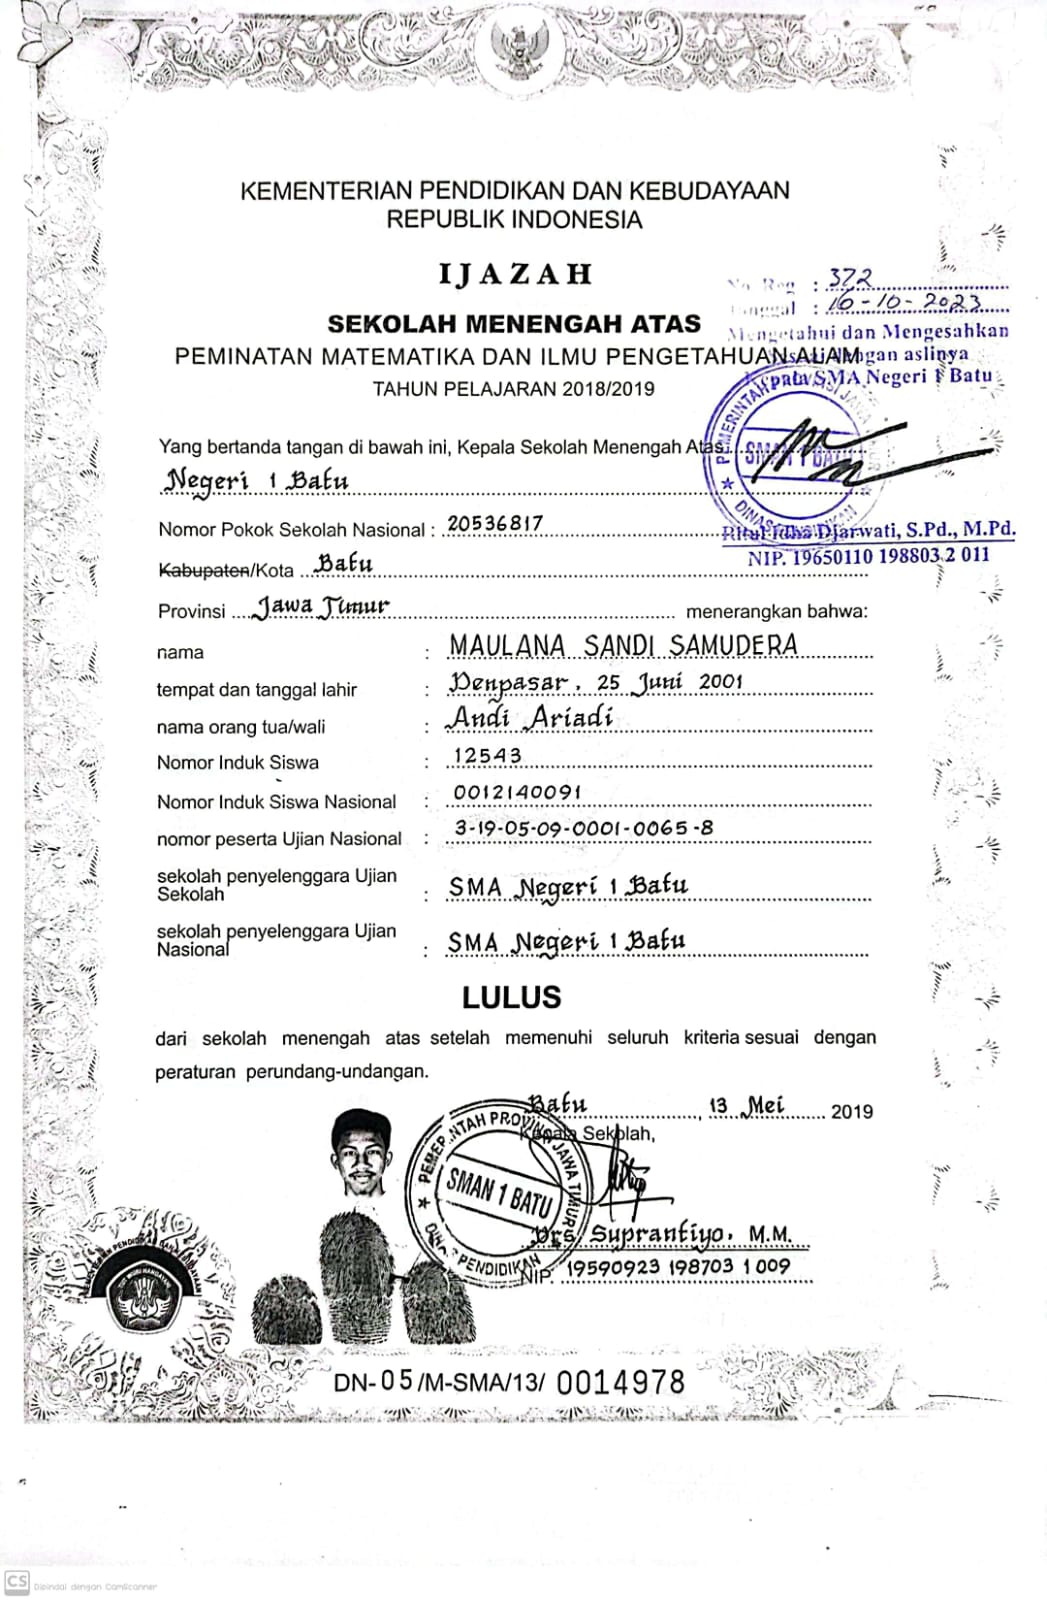 KEMENTERIAN PENDIDIKAN DAN KEBUDAYAAN
REPUBLIK INDONESIA
IJAZAH
SEKOLAH MENENGAH ATAS
PEMINATAN MATEMATIKA DAN ILMU PENGETAHUAN ALAM
TAHUN PELAJARAN 2018/2019
No Reg : 372
Tanggal : 16-10-2023
Mengetahui dan Mengesahkan
Sesuai dengan aslinya
Kepala SMA Negeri 1 Batu
PEMERINTAH PROVINSI JAWA
SMAN 1 BATU
DINAS PENDIDIKAN
Ritul Idha Djarwati, S.Pd., M.Pd.
NIP. 19650110 198803 2 011
Yang bertanda tangan di bawah ini, Kepala Sekolah Menengah Atas
Negeri 1 Batu
Nomor Pokok Sekolah Nasional : 20536817
Kabupaten/Kota Batu
Provinsi Jawa Timur menerangkan bahwa:
nama : MAULANA SANDI SAMUDERA
tempat dan tanggal lahir : Denpasar, 25 Juni 2001
nama orang tua/wali : Andi Ariadi
Nomor Induk Siswa : 12543
Nomor Induk Siswa Nasional : 0012140091
nomor peserta Ujian Nasional : 3-19-05-09-0001-0065-8
sekolah penyelenggara Ujian
Sekolah : SMA Negeri 1 Batu
sekolah penyelenggara Ujian
Nasional : SMA Negeri 1 Batu
LULUS
dari sekolah menengah atas setelah memenuhi seluruh kriteria sesuai dengan
peraturan perundang-undangan.
Batu, 13 Mei 2019
Kepala Sekolah,
PEMERINTAH PROVINSI JAWA TIMUR
SMAN 1 BATU
DINAS PENDIDIKAN
Drs Suprantiyo, M.M.
NIP. 19590923 198703 1 009
DN-05/M-SMA/13/ 0014978
CS Dipindai dengan CamScanner